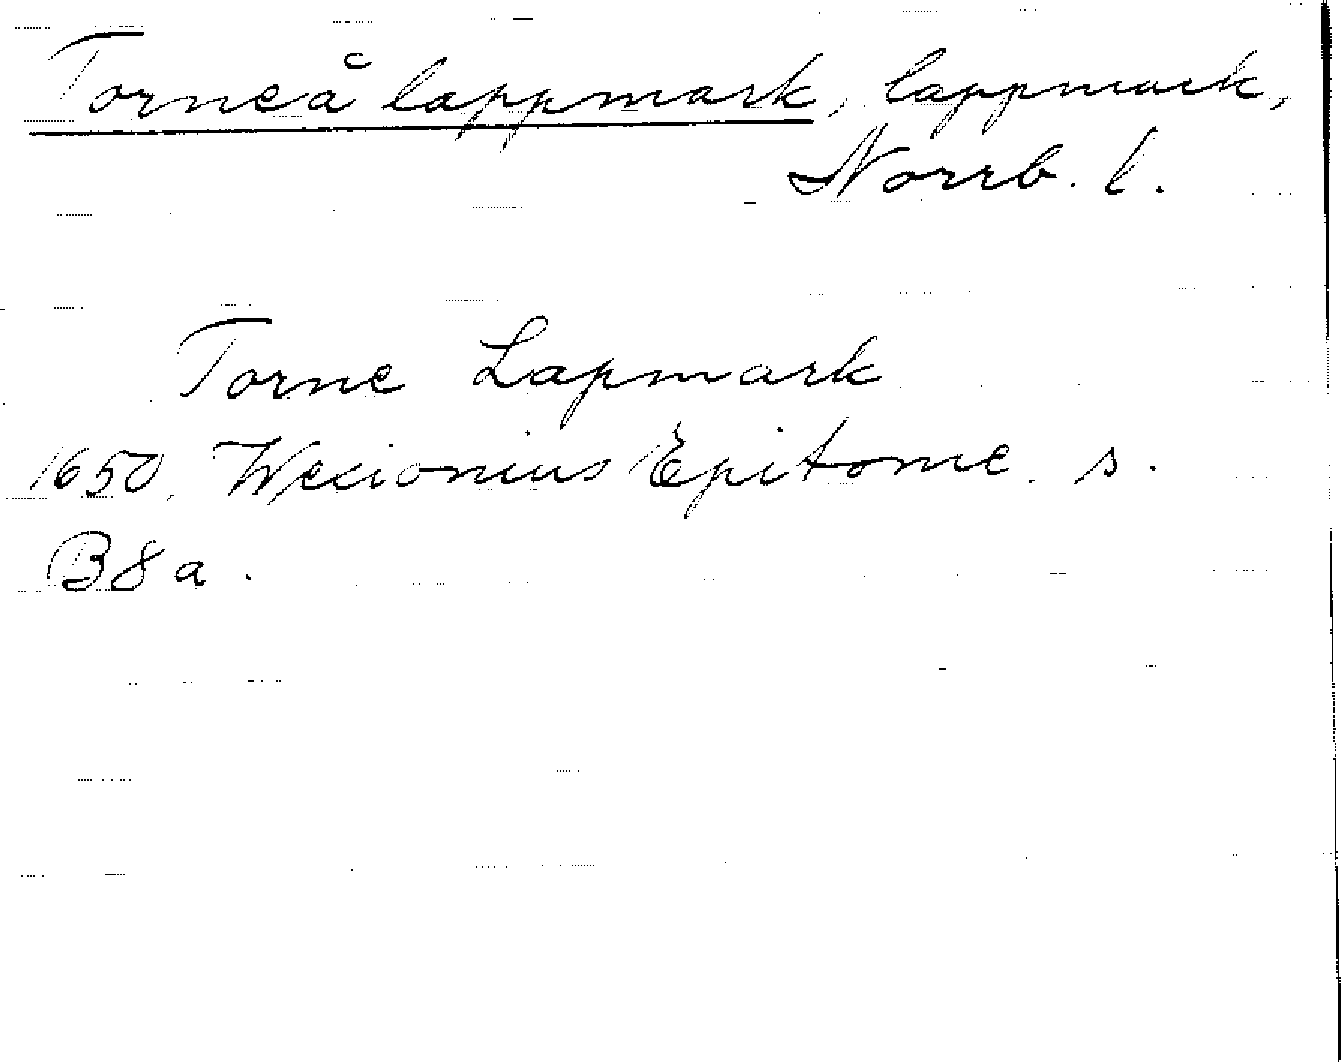 Torneå lappmark, lappmark,
Norrb. l.
Torne Lapmark
1650. Wexionius Epitome. s.
B8a.